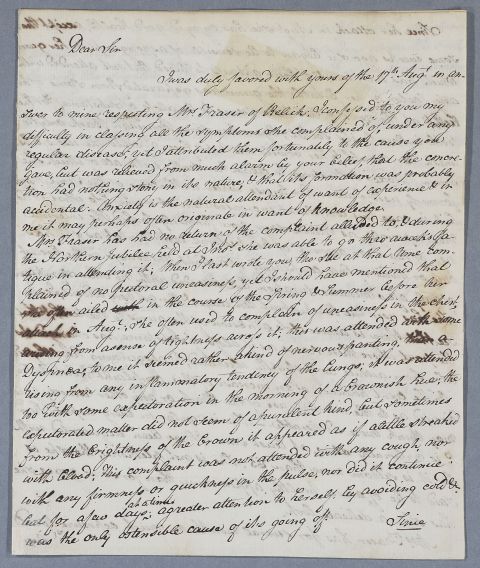 Dear Sir
I was duly favored with yours of the 17th Augt. in an-
swer to mine respecting Mrs Fraser of Relick. I confessed to you my
difficulty in classing all the symptoms she complained of under any
regular disease, yet I attributed them fortunately to the cause you
gave, but was relieved from much alarm by your Letter, that the concre-
tion had nothing stony in its nature, & that its formation was probably
accidental. Anxiety is the natural attendant of want of experience & in
me it may perhaps often originate in want of knowledge.
Mrs Fraser has had no return of the complaint alluded to, & during
the Northern Jubilee held at she was able to go thro a week's fa-
tigue in attending it; When I last wrote you, tho' she at that time com-
plained of no pectoral uneasiness, yet I should have mentioned that
ailed in the course of the Spring & Summer before her
in Augt. she often used to complain of uneasiness in the chest,
arising from a sense of tightness across it; this was attended with some
Dyspnœa; to me it seemed rather a kind of nervous panting, than a-
rising from any inflammatory tendency of the Lungs, it was attended
too with some expectoration in the morning of a brownish hue; the
expectorated matter did not seem of a purulent kind, but sometimes
from the brightness of the brown it appeared as if a little streaked
with blood; This complaint was not attended with any cough, nor
with any firmness or quickness in the pulse, nor did it continue
but for a few days at a time; a greater attention to herself by avoiding cold &c
was the only ostensible cause of its going off.
Since